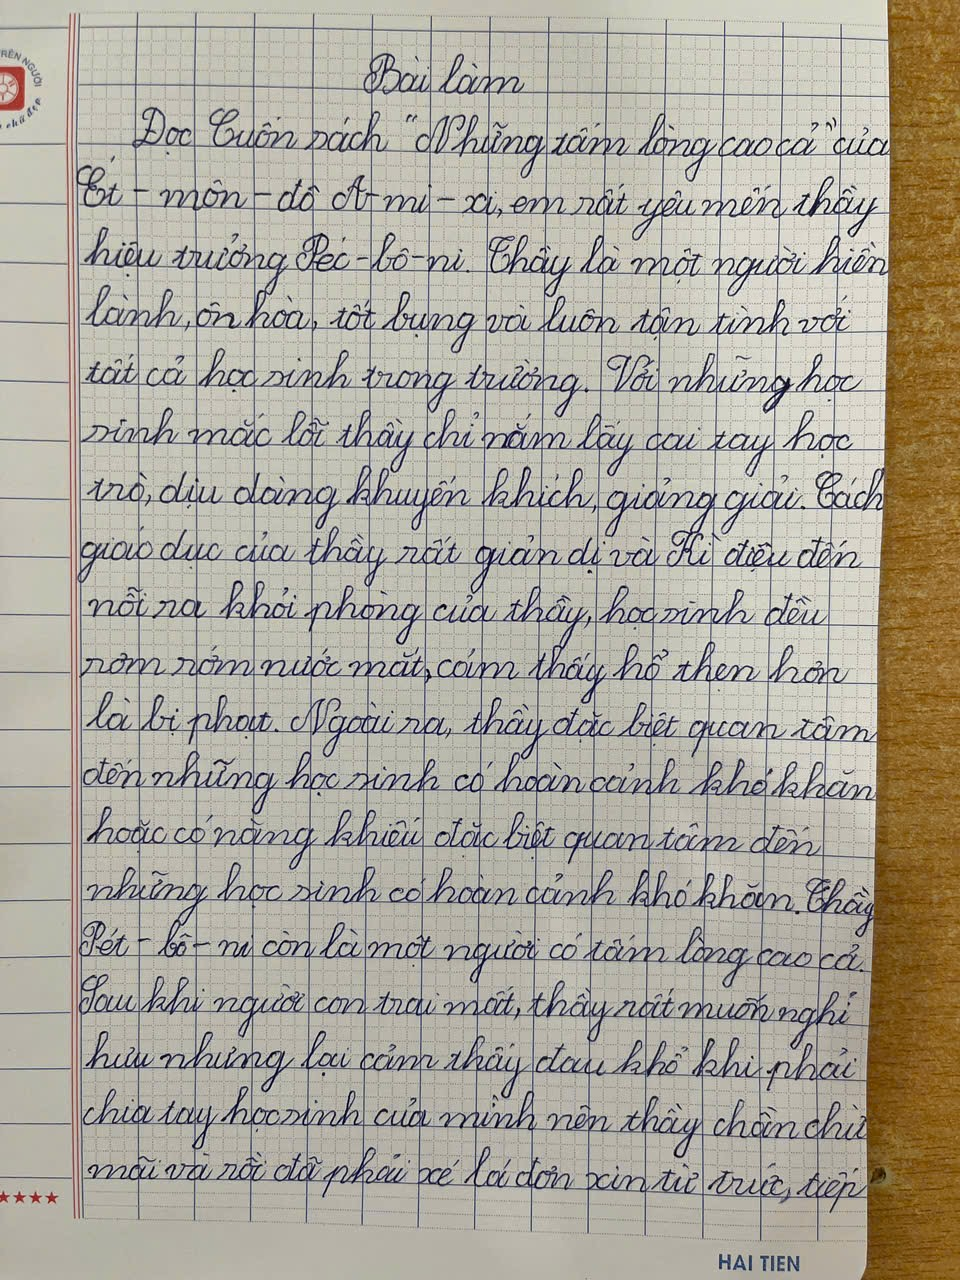 Bài làm
Đọc Cuốn sách "Những tấm lòng cao cả" của
Ét - môn - đô A - mi - xi, em rất yêu mến thầy
hiệu trưởng Péc - bô - ni. Thầy là một người hiền
lành, ôn hòa, tốt bụng và luôn tận tình với
tất cả học sinh trong trường. Với những học
sinh mắc lỗi thầy chỉ nắm lấy cai tay học
trò, dịu dàng khuyến khích, giảng giải. Cách
giáo dục của thầy rất giản dị và Kì diệu đến
nỗi ra khỏi phòng của thầy, học sinh đều
rơm rớm nước mắt, cảm thấy hổ thẹn hơn
là bị phạt. Ngoài ra, thầy đặc biệt quan tâm
đến những học sinh có hoàn cảnh khó khăn
hoặc có năng khiếu đặc biệt quan tâm đến
những học sinh có hoàn cảnh khó khăn. Thầy
Pét - bô - ni còn là một người có tấm lòng cao cả.
Sau khi người con trai mất, thầy rất muốn nghỉ
hưu nhưng lại cảm thấy đau khổ khi phải
chia tay học sinh của mình nên thầy chần chừ
mãi và rồi đã phải xé lá đơn xin từ trức, tiếp
HAI TIEN